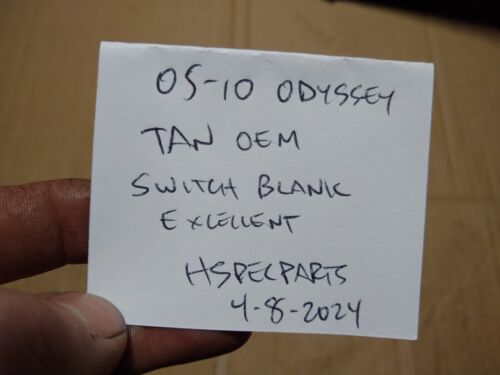 05-10 ODYSSEY
TAN OEM
SWITCH BLANK
EXLELLENT
HSPECPARTS
4-8-2024